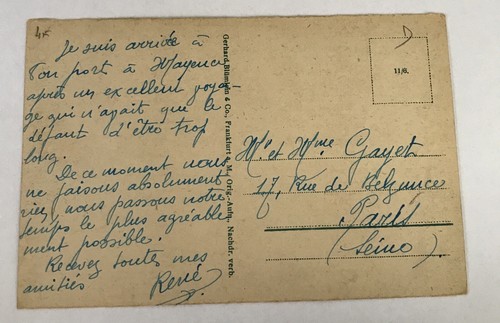 4x
Je suis arrivé à
bon port à Mayence
après un excellent voya-
ge qui n'ayait que le
défaut d'être trop
long.
De ce moment nous
ne faisons absolument
rien, nous passons notre
temps le plus agréable
ment possible.
Recevez toutes mes
amitiés René
Gerhard Blümlein & Co., Frankfurt a. M. Orig.-Aufn. Nachdr. verb.
D
11/6.
Mr et Mme Gayet
17, Rue de
Paris
(Seine)